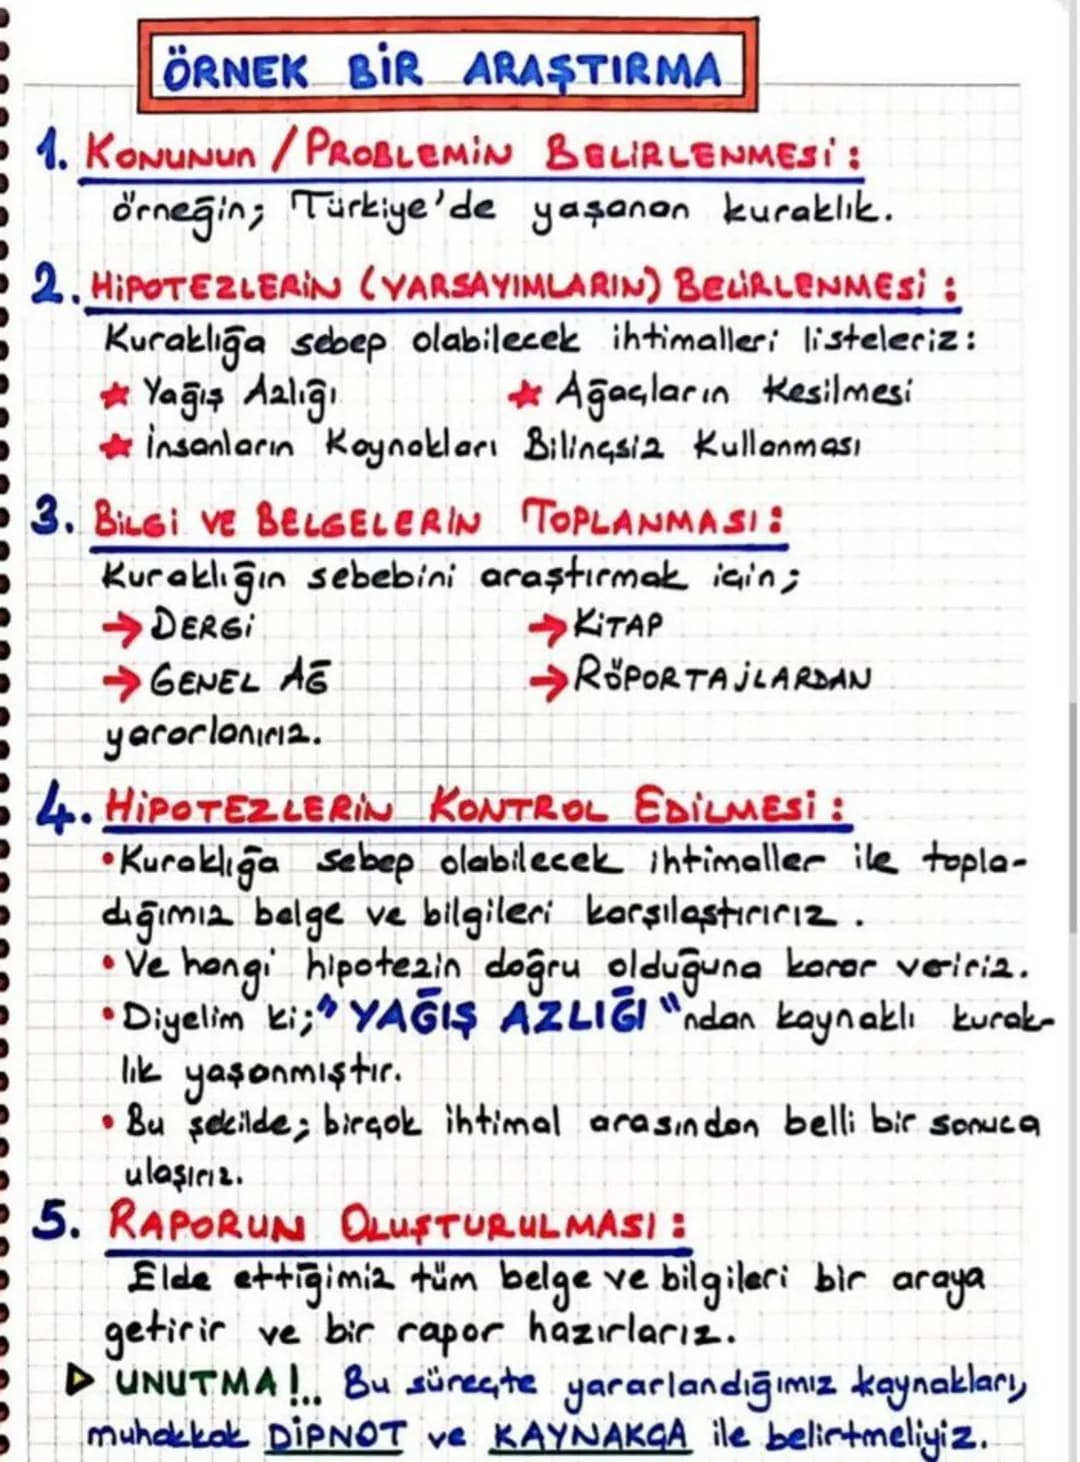 ÖRNEK BİR ARAŞTIRMA
1. KONUNUN / PROBLEMİN BELİRLENMESİ :
örneğin; Türkiye'de yaşanan kuraklık.
2. HİPOTEZLERİN (VARSAYIMLARIN) BELİRLENMESİ :
Kuraklığa sebep olabilecek ihtimalleri listeleriz:
★ Yağış Azlığı ★ Ağaçların Kesilmesi
★ İnsanların Kaynakları Bilinçsiz Kullanması
3. BİLGİ VE BELGELERİN TOPLANMASI :
Kuraklığın sebebini araştırmak için;
→ DERGİ → KİTAP
→ GENEL AĞ → RÖPORTAJLARDAN
yararlanırız.
4. HİPOTEZLERİN KONTROL EDİLMESİ :
• Kuraklığa sebep olabilecek ihtimaller ile topla-
dığımız belge ve bilgileri karşılaştırırız.
• Ve hangi hipotezin doğru olduğuna karar veririz.
• Diyelim ki; "YAĞIŞ AZLIĞI "ndan kaynaklı kurak-
lık yaşanmıştır.
• Bu şekilde; birçok ihtimal arasından belli bir sonuca
ulaşırız.
5. RAPORUN OLUŞTURULMASI :
Elde ettiğimiz tüm belge ve bilgileri bir araya
getirir ve bir rapor hazırlarız.
▷ UNUTMA!.. Bu süreçte yararlandığımız kaynakları,
muhakkak DİPNOT ve KAYNAKÇA ile belirtmeliyiz.